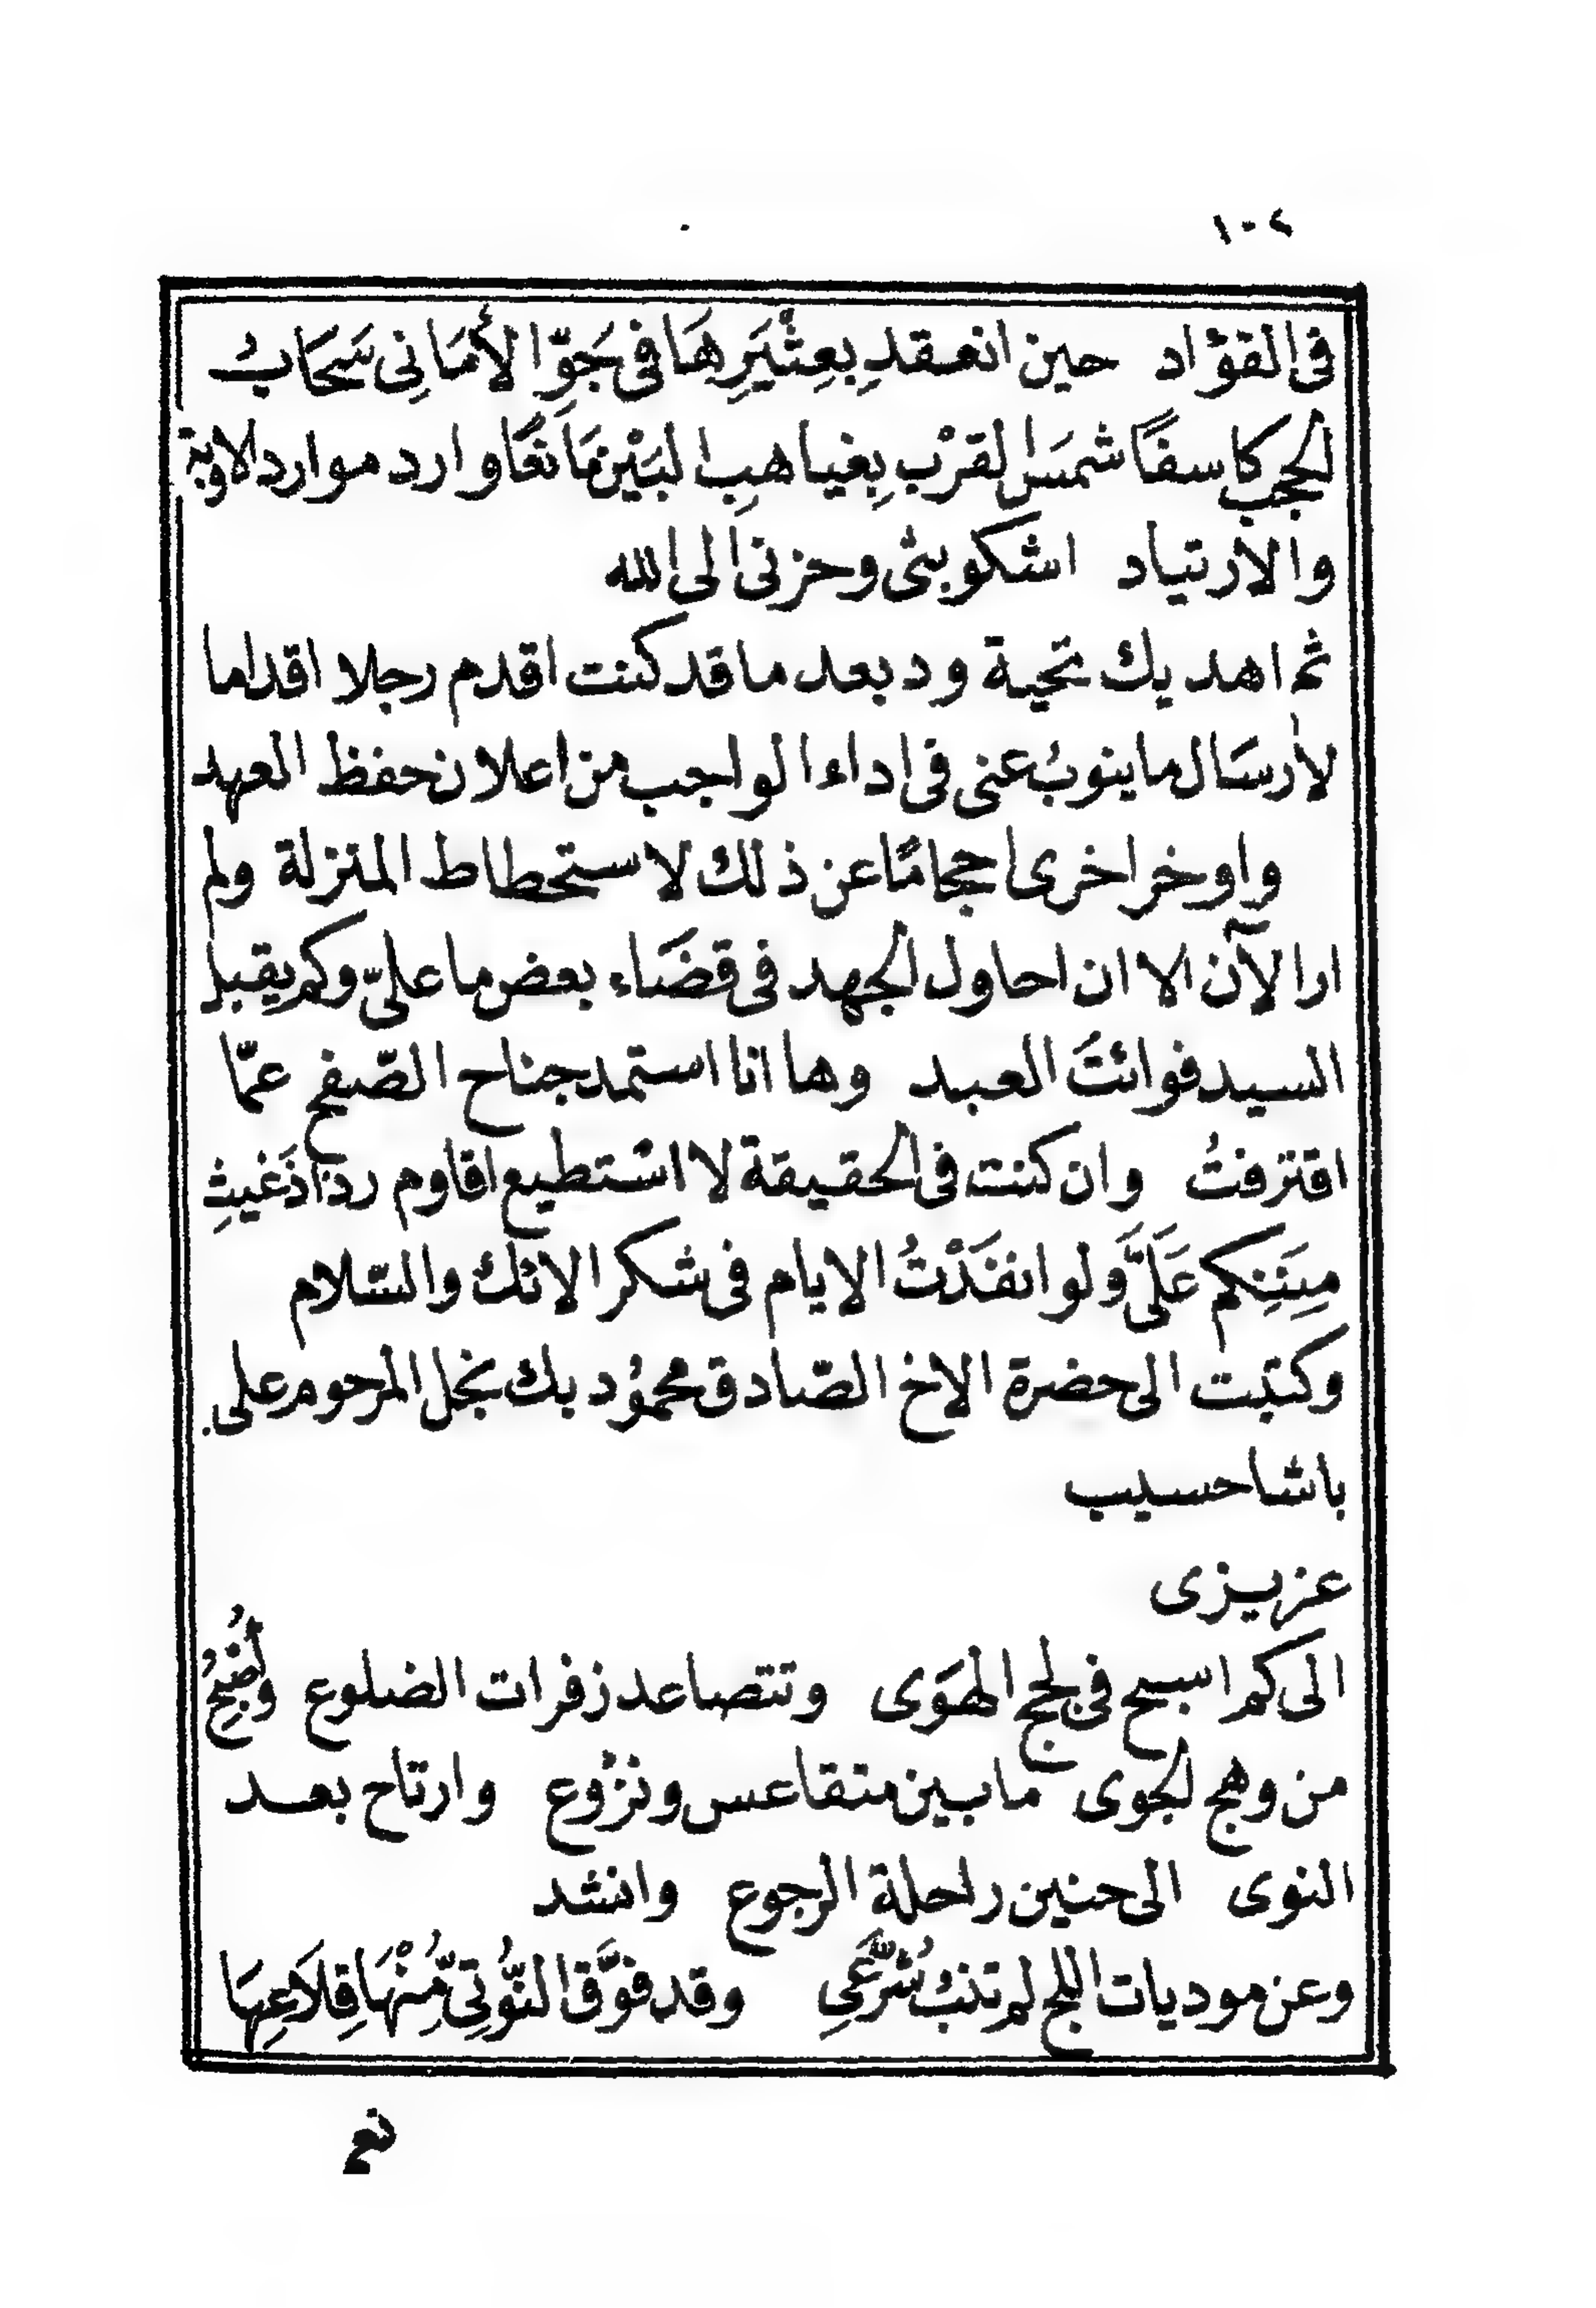 ١٠٤
فى الفؤاد حين انعقد بِعِثْيَرِهَا فى جَوّ الأمَانِى سَحَابُ
الحجب كاسفًا شمسَ القرْب بِغياهبِ البَيْن مَانعًا وارد موارد الاوبة
والارتياد اشكو بثى وحزنى الى الله
ثم اهديك تحية ود بعد ما قد كنت اقدم رجلا اقداما
لإرسَال ما ينوبُ عنى فى اداء الواجب من اعلان حفظ العهد
واوخر اخرى احجامًا عن ذلك لاستحطاط المنزلة ولم
ار الآن الا ان احاول الجهد فى قضَاء بعض ما علىّ وكم يقبل
السيد فوائتَ العبد وها انا استمد جناح الصّفح عمّا
اقترفتُ وان كنت فى الحقيقة لا استطيع اقاوم رذاذ غيثِ
مِنَنِكم عَلَىَّ ولو انفَدْتُ الايام فى شكر الائك والسّلام
وكتبت الى حضرة الاخ الصّادق محموُد بك نجل المرحوم على
باشا حسيب
عزيزى
الى كم اسبح فى لجج الهَوَى وتتصاعد زفرات الضلوع وأضِجُّ
من وهج الجوى ما بين متقاعس ونزُوع وارتاح بعد
النوى الى حنين راحلة الرجوع وانشد
وعن موديات اللج لم تنبُ شُرَّعِى وقد فوَّق النُّوتِىّ مُنْهَا قِلاَعِهَا
نعم